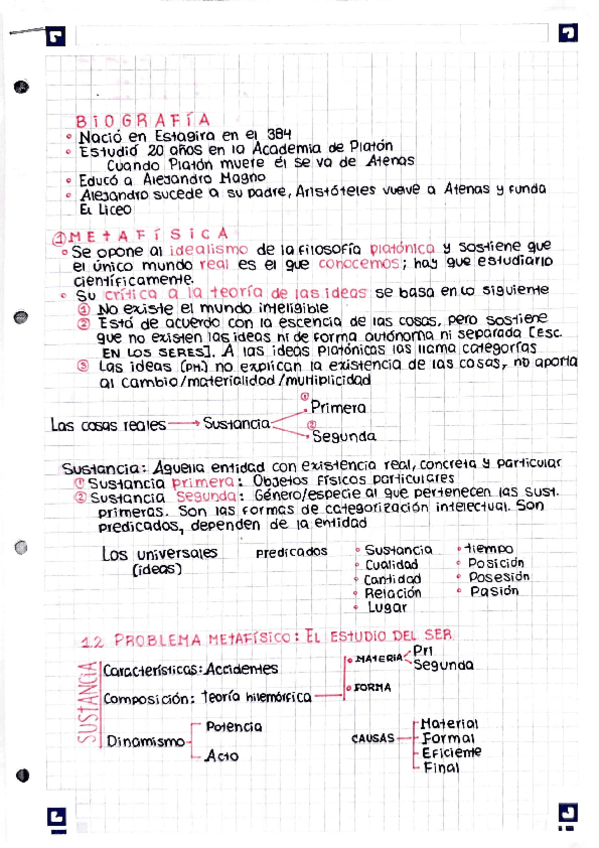 BIOGRAFÍA
• Nació en Estagira en el 384
• Estudió 20 años en la Academia de Platón
Cuando Platón muere él se va de Atenas
• Educó a Alejandro Magno
• Alejandro sucede a su padre, Aristóteles vuelve a Atenas y funda
EL Liceo
① METAFÍSICA
• Se opone al idealismo de la filosofía platónica y sostiene que
el único mundo real es el que conocemos; hay que estudiarlo
científicamente.
• Su crítica a la teoría de las ideas se basa en lo siguiente
① No existe el mundo inteligible
② Está de acuerdo con la escencia de las cosas, pero sostiene
que no existen las ideas ni de forma autónoma ni separada [ESC.
EN LOS SERES]. A las ideas platónicas las llama categorías
③ Las ideas (PM.) no explican la existencia de las cosas, no aporta
al cambio/materialidad/multiplicidad
① Primera
Las cosas reales → Sustancia
② Segunda
Sustancia: Aquella entidad con existencia real, concreta y particular
① Sustancia primera: Objetos físicos particulares
② Sustancia Segunda: Género/especie al que pertenecen las sust.
primeras. Son las formas de categorización intelectual. Son
predicados, dependen de la entidad
Los universales predicados • Sustancia • tiempo
(ideas) • Cualidad • Posición
• Cantidad • Posesión
• Relación • Pasión
• Lugar
1.2 PROBLEMA METAFÍSICO: EL ESTUDIO DEL SER
SUSTANCIA
Características: Accidentes
• MATERIA Pri
Segunda
Composición: Teoría hilemórfica • FORMA
Dinamismo Potencia
Acto
CAUSAS Material
Formal
Eficiente
Final